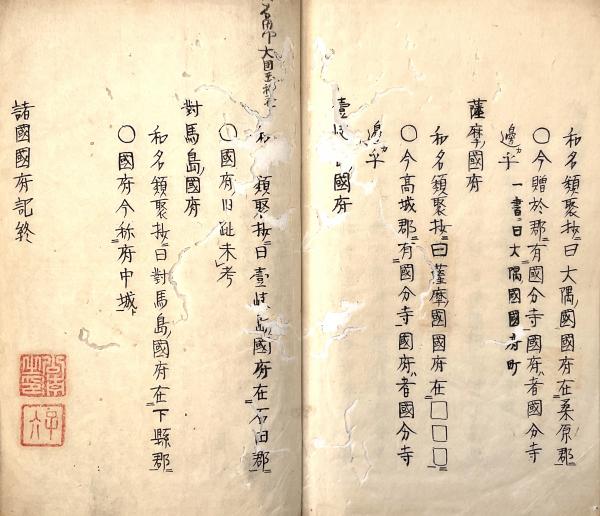 和名類聚抄ニ曰大隅ノ國國府在桑原郡ニ
〇今贈於郡ニ有國分寺國府ハ者國分寺
邊カ乎 一書ニ曰大隅國國府町
薩摩ノ國府
和名類聚抄ニ曰薩摩ノ國國府在□□□ニ
〇今高城郡ニ有國分寺國府ハ者國分寺
邊カ乎
國府
類聚抄ニ曰壹岐島ノ國府在石田郡ニ
〇國府ノ旧趾未考
對馬島ノ國府
和名類聚抄ニ曰對馬島ノ國府在下縣郡ニ
〇國府今称府中城ト
諸國國府記終